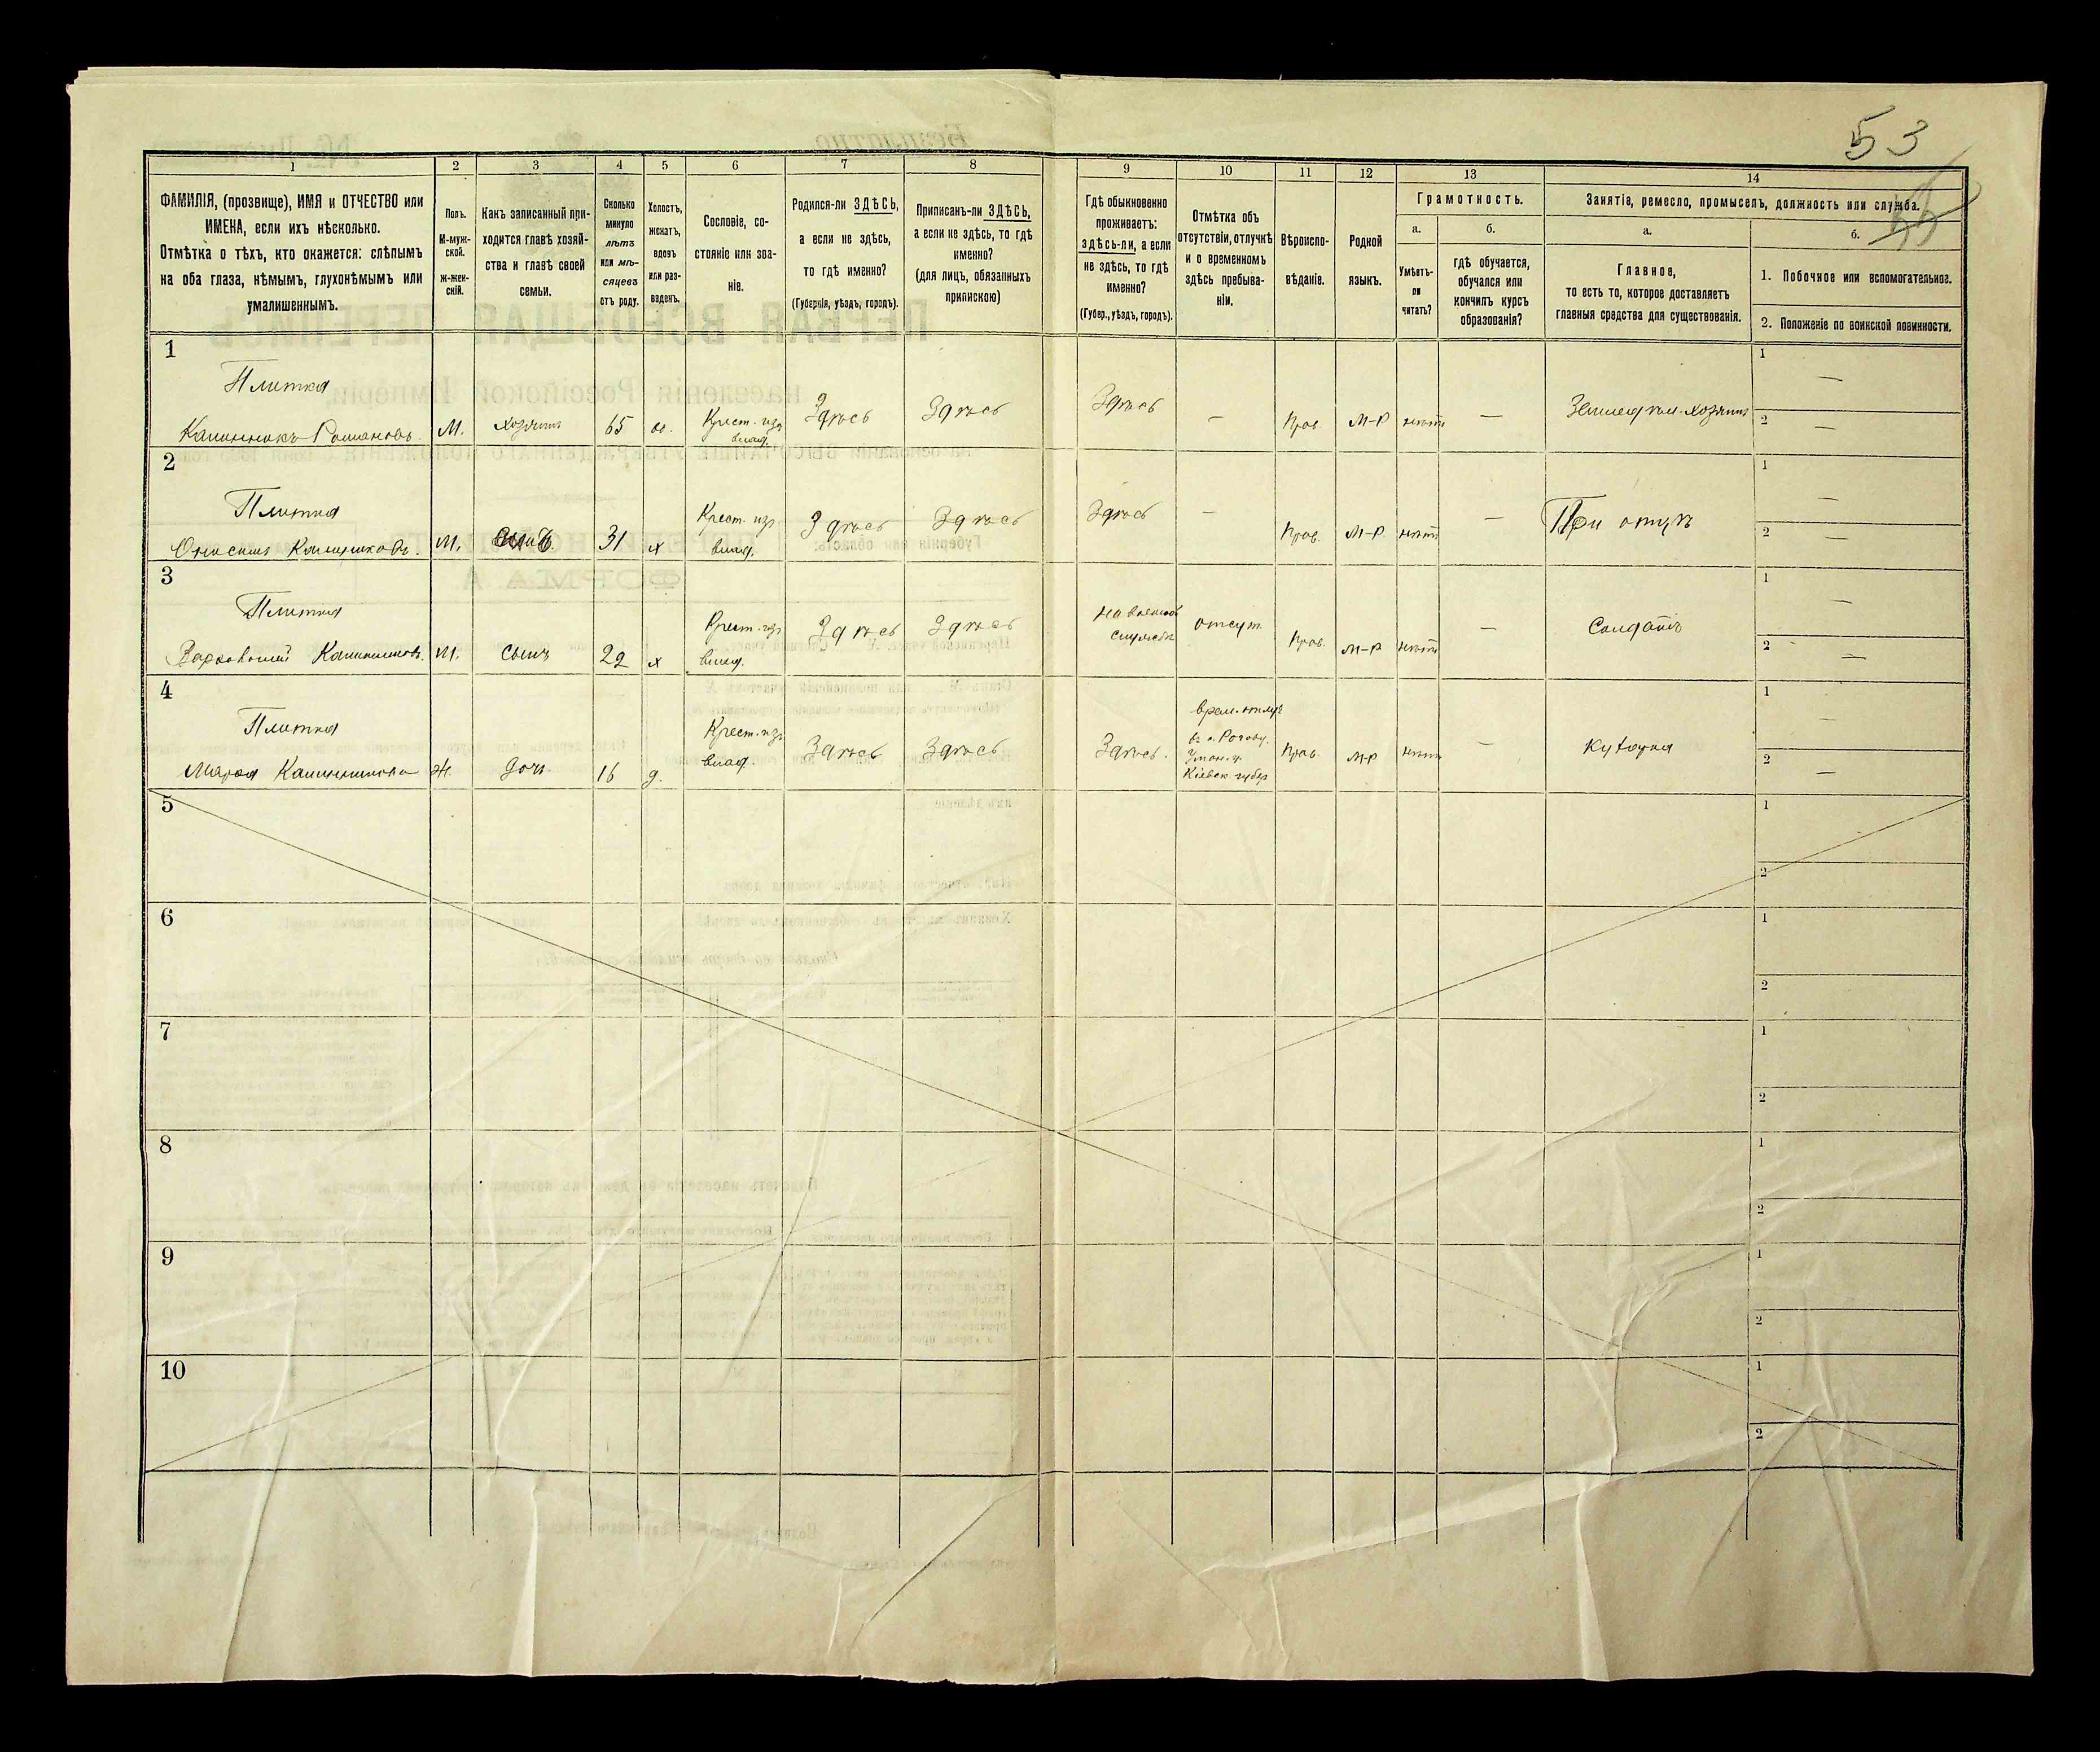 53
1
2
3
4
5
6
7
8
9
10
11
12
13
14
ФАМИЛІЯ, (прозвище), ИМЯ и ОТЧЕСТВО или
ИМЕНА, если ихъ нѣсколько.
Отмѣтка о тѣхъ, кто окажется: слѣпымъ
на оба глаза, нѣмымъ, глухонѣмымъ или
умалишеннымъ.
Полъ.
М-муж-
ской.
ж-жен-
скій.
Какъ записанный при-
ходится главѣ хозяй-
ства и главѣ своей
семьи.
Сколько
минуло
лѣтъ
или мѣ-
сяцевъ
отъ роду.
Холостъ,
женатъ,
вдовъ
или раз-
веденъ.
Сословіе, со-
стояніе или зва-
ніе.
Родился-ли ЗДѢСЬ,
а если не здѣсь,
то гдѣ именно?
(Губернія, уѣздъ, городъ).
Приписанъ-ли ЗДѢСЬ,
а если не здѣсь, то гдѣ
именно?
(для лицъ, обязанныхъ
припискою)
Гдѣ обыкновенно
проживаетъ:
здѣсь-ли, а если
не здѣсь, то гдѣ
именно?
(Губер., уѣздъ, городъ).
Отмѣтка объ
отсутствіи, отлучкѣ
и о временномъ
здѣсь пребыва-
ніи.
Вѣроиспо-
вѣданіе.
Родной
языкъ.
Грамотность.
а.
Умѣетъ-
ли
читать?
б.
гдѣ обучается,
обучался или
кончилъ курсъ
образованія?
Занятіе, ремесло, промыселъ, должность или служба.
а.
Главное,
то есть то, которое доставляетъ
главныя средства для существованія.
б.
1. Побочное или вспомогательное.
2. Положеніе по воинской повинности.
1
Плитка
Романовъ. М. хозяинъ 65 Крест. изъ влад. Здѣсь Здѣсь Здѣсь — Прав. М-Р нѣтъ — Земледѣл. хозяинъ
1 —
2 —
2
Плитка
Онисимъ М. сынъ 31 х Крест. изъ влад. Здѣсь Здѣсь Здѣсь — Прав. М-Р нѣтъ — При отцѣ
1 —
2 —
3
Плитка
М. сынъ 22 х Крест. изъ влад. Здѣсь Здѣсь на военной службѣ отсут. Прав. М-Р нѣтъ — Солдатъ
1 —
2 —
4
Плитка
Ж. дочь 16 д. Крест. изъ влад. Здѣсь Здѣсь Здѣсь. Кіевск. губер Прав. М-Р нѣтъ —
1 —
2 —
5
1
2
6
1
2
7
1
2
8
1
2
9
1
2
10
1
2